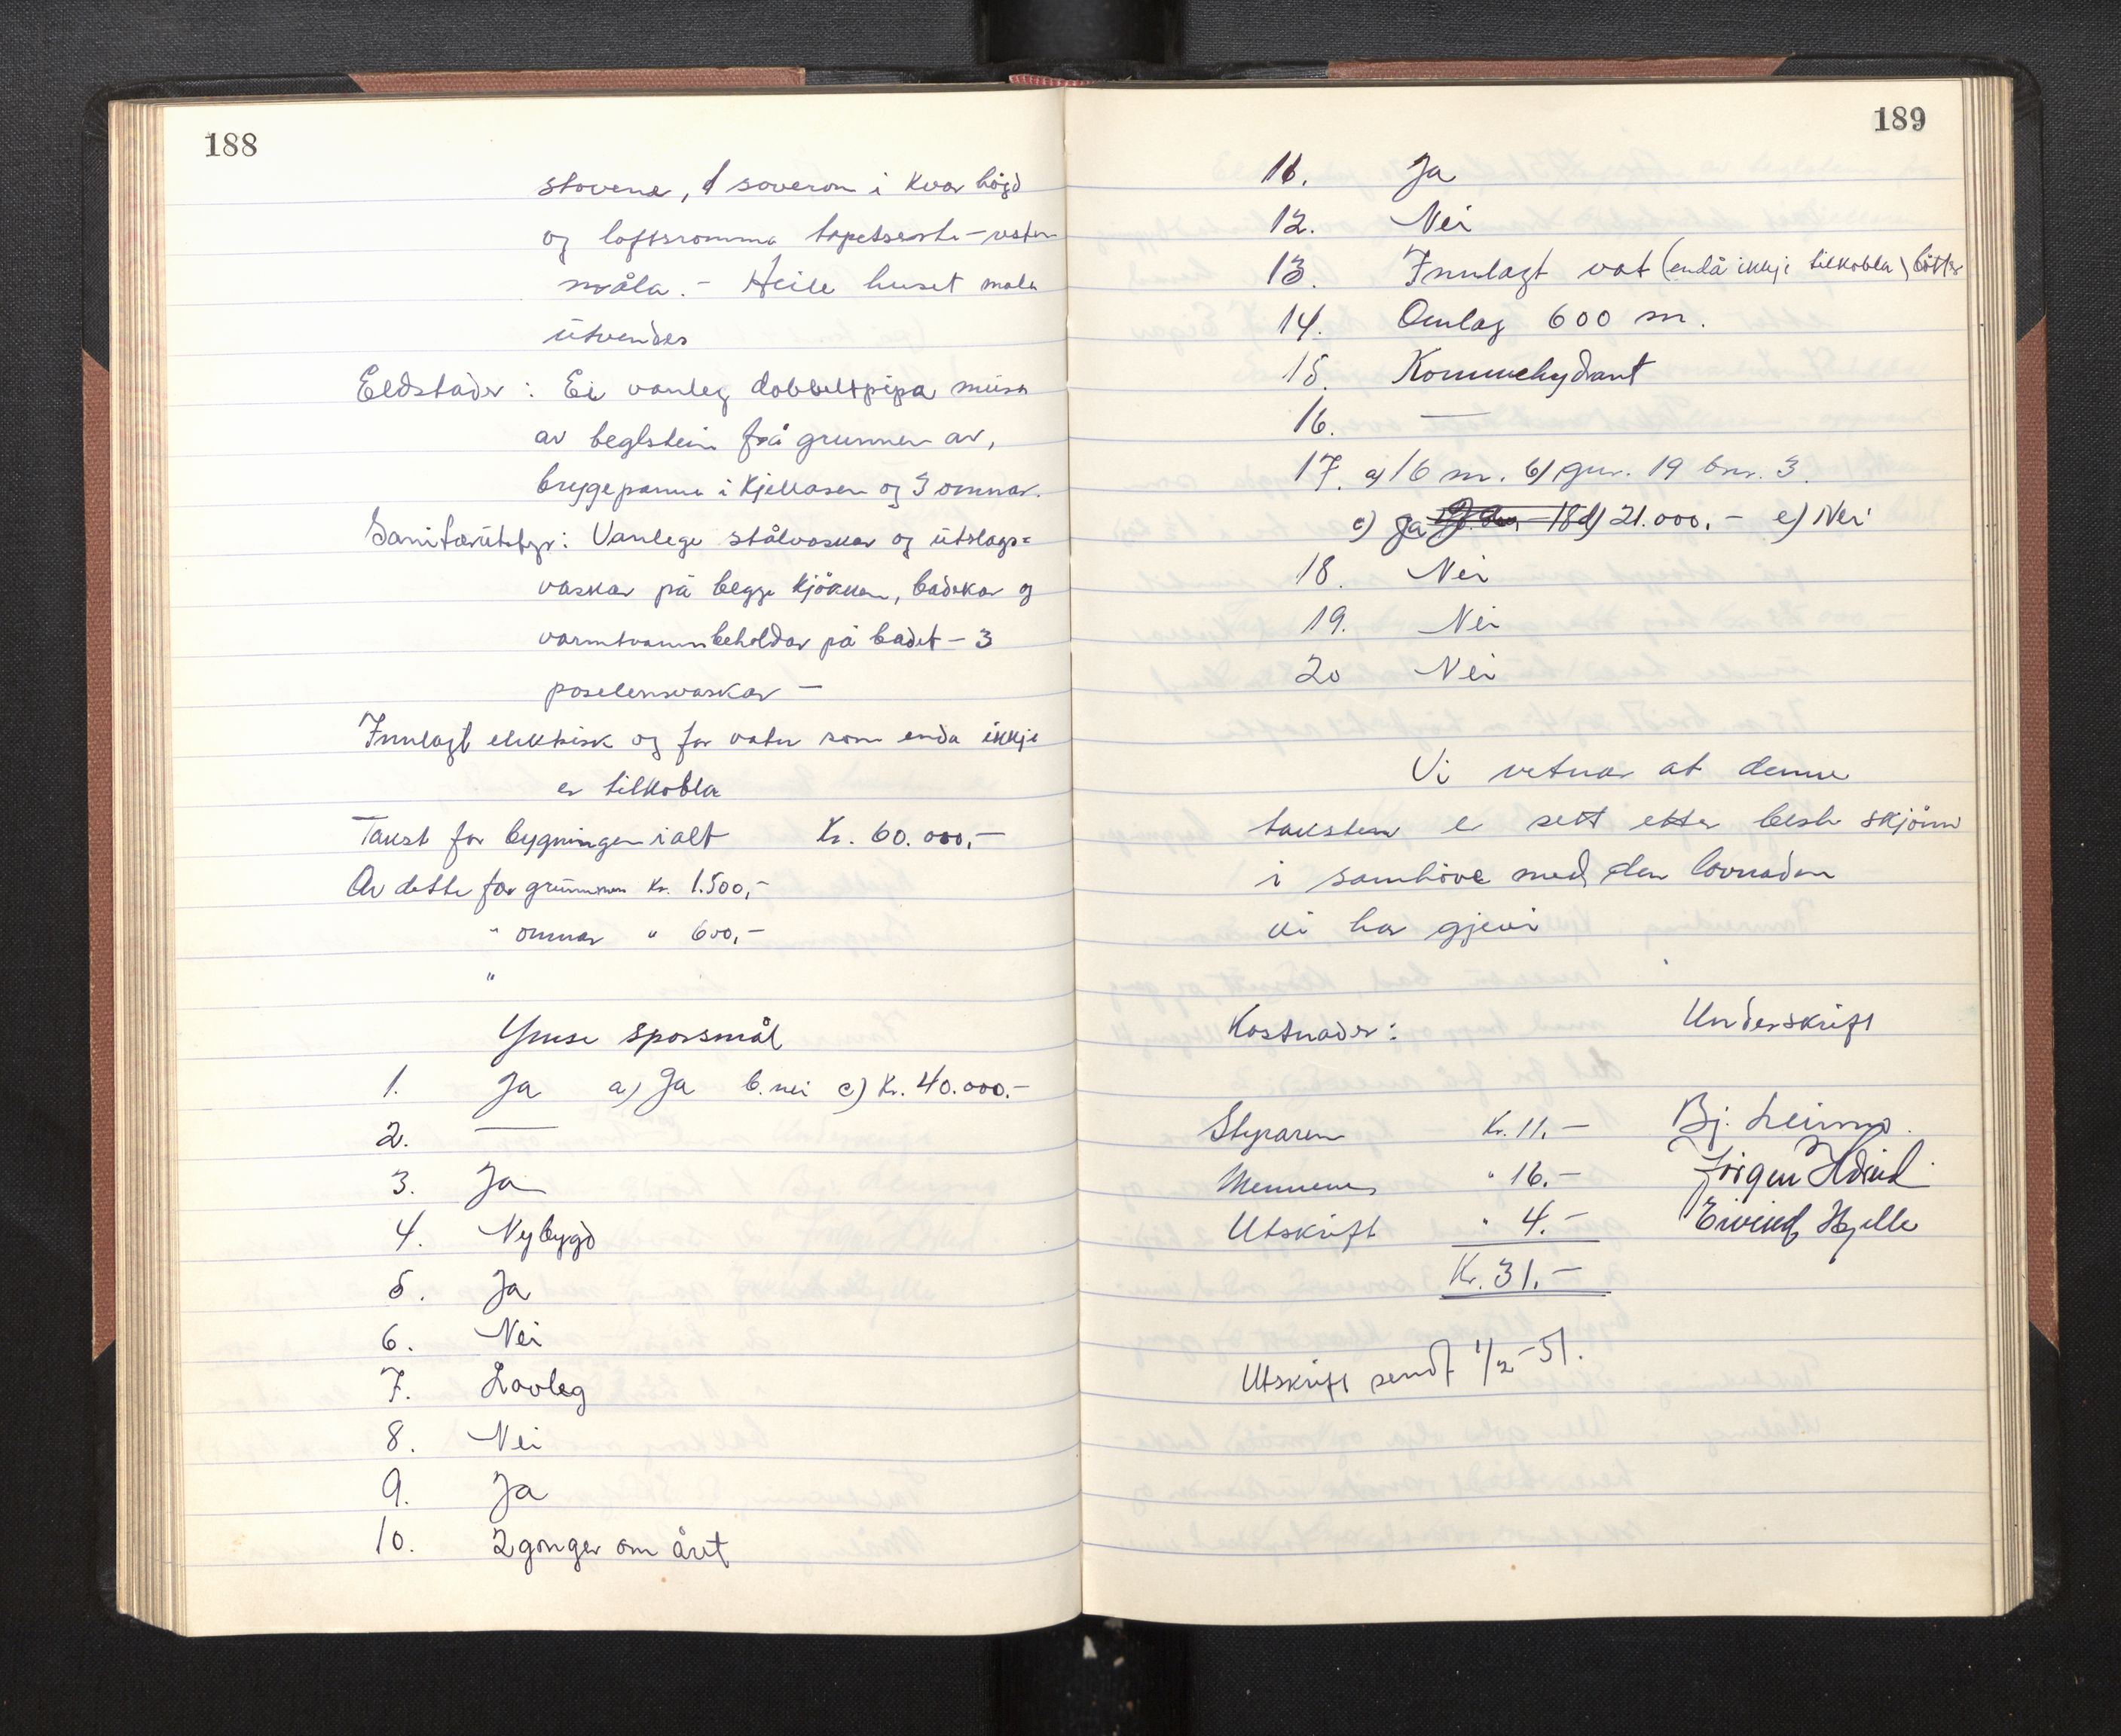 188
stovene, 1 soverom i kvar högd
og loftsromma tapetserte - resten
måla. - Heile huset mala
utvendes
Eldstader : Ei vanleg dobbeltpipa mura
av teglstein frå grunnen av,
bryggepanna i kjellaren og 3 omnar.
Sanitærutstyr: Vanlege stålvaskar og utslags=
vaskar på begge kjökken, badekar og
varmtvannbeholdar på badet - 3
poselensvaskar -
Innlagt elektrisk og for vatn som enda ikkje
er tilkobla
Takst for bygningen ialt Kr. 60.000,-
Av dette for grunnmur Kr. 1.500,-
" omnar " 600,-
"
Ymse sporsmål
1. Ja a) Ja b. nei c) Kr. 40.000.-
2. —
3. Ja
4. Nybygd
5. Ja
6. Nei
7. Lovleg
8. Nei
9. Ja
10. 2 gonger om året
189
11. Ja
12. Nei
13. Innlagt vat (endå ikkje tilkobla) bötter
14. Omlag 600 m.
15. Kommehydrant
16. —
17. a) 16 m. b) gnr. 19 bnr. 3.
c) Ja d) 21.000,- e) Nei
18. Nei
19. Nei
20 Nei
Vi vitnar at denne
taksten er sett etter beste skjönn
i samhöve med den lovnaden
vi har gjevi
Kostnader: Underskrift
Styraren Kr. 11,- Bj. Leirmo.
Mennene " 16.- Jörgen
Utskrift " 4.- Eivind Hjelle
Kr. 31,-
Utskrift sendt 1/2-51.